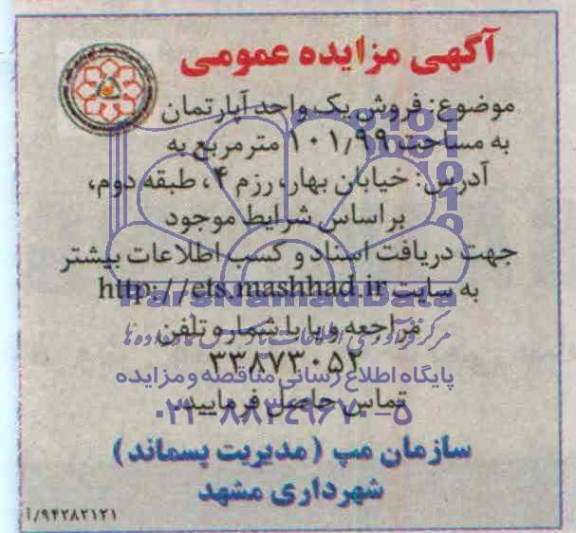 آگهی مزایده عمومی
موضوع: فروش یک واحد آپارتمان
به مساحت ۱۰۱/۹۹ مترمربع به
آدرس: خیابان بهار، رزم ۴، طبقه دوم،
براساس شرایط موجود
جهت دریافت اسناد و کسب اطلاعات بیشتر
به سایت http://ets.mashhad.ir
مراجعه و یا با شماره تلفن
۳۳۸۷۳۰۵۲
تماس حاصل فرمایید.
سازمان مپ (مدیریت پسماند)
شهرداری مشهد
۹۴۲۸۲۱۲۱/آ
ParsNamadData
پایگاه اطلاع رسانی مناقصه و مزایده
۰۲۱-۸۸۳۴۹۶۷۰-۵